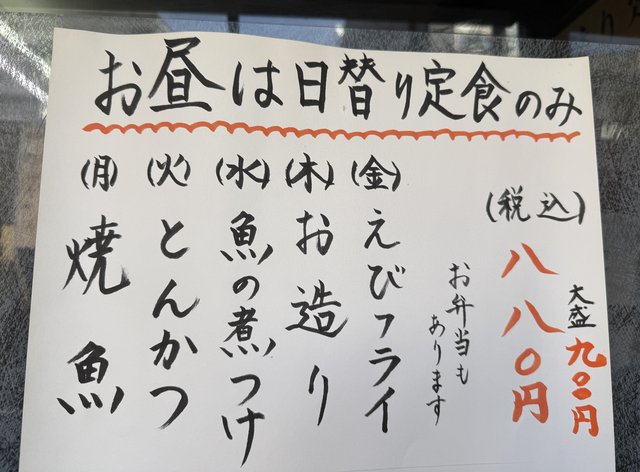 お昼は日替り定食のみ
(月)焼魚
(火)とんかつ
(水)魚の煮つけ
(木)お造り
(金)えびフライ
お弁当も
あります
(税込)
八八〇円
大盛九〇〇円